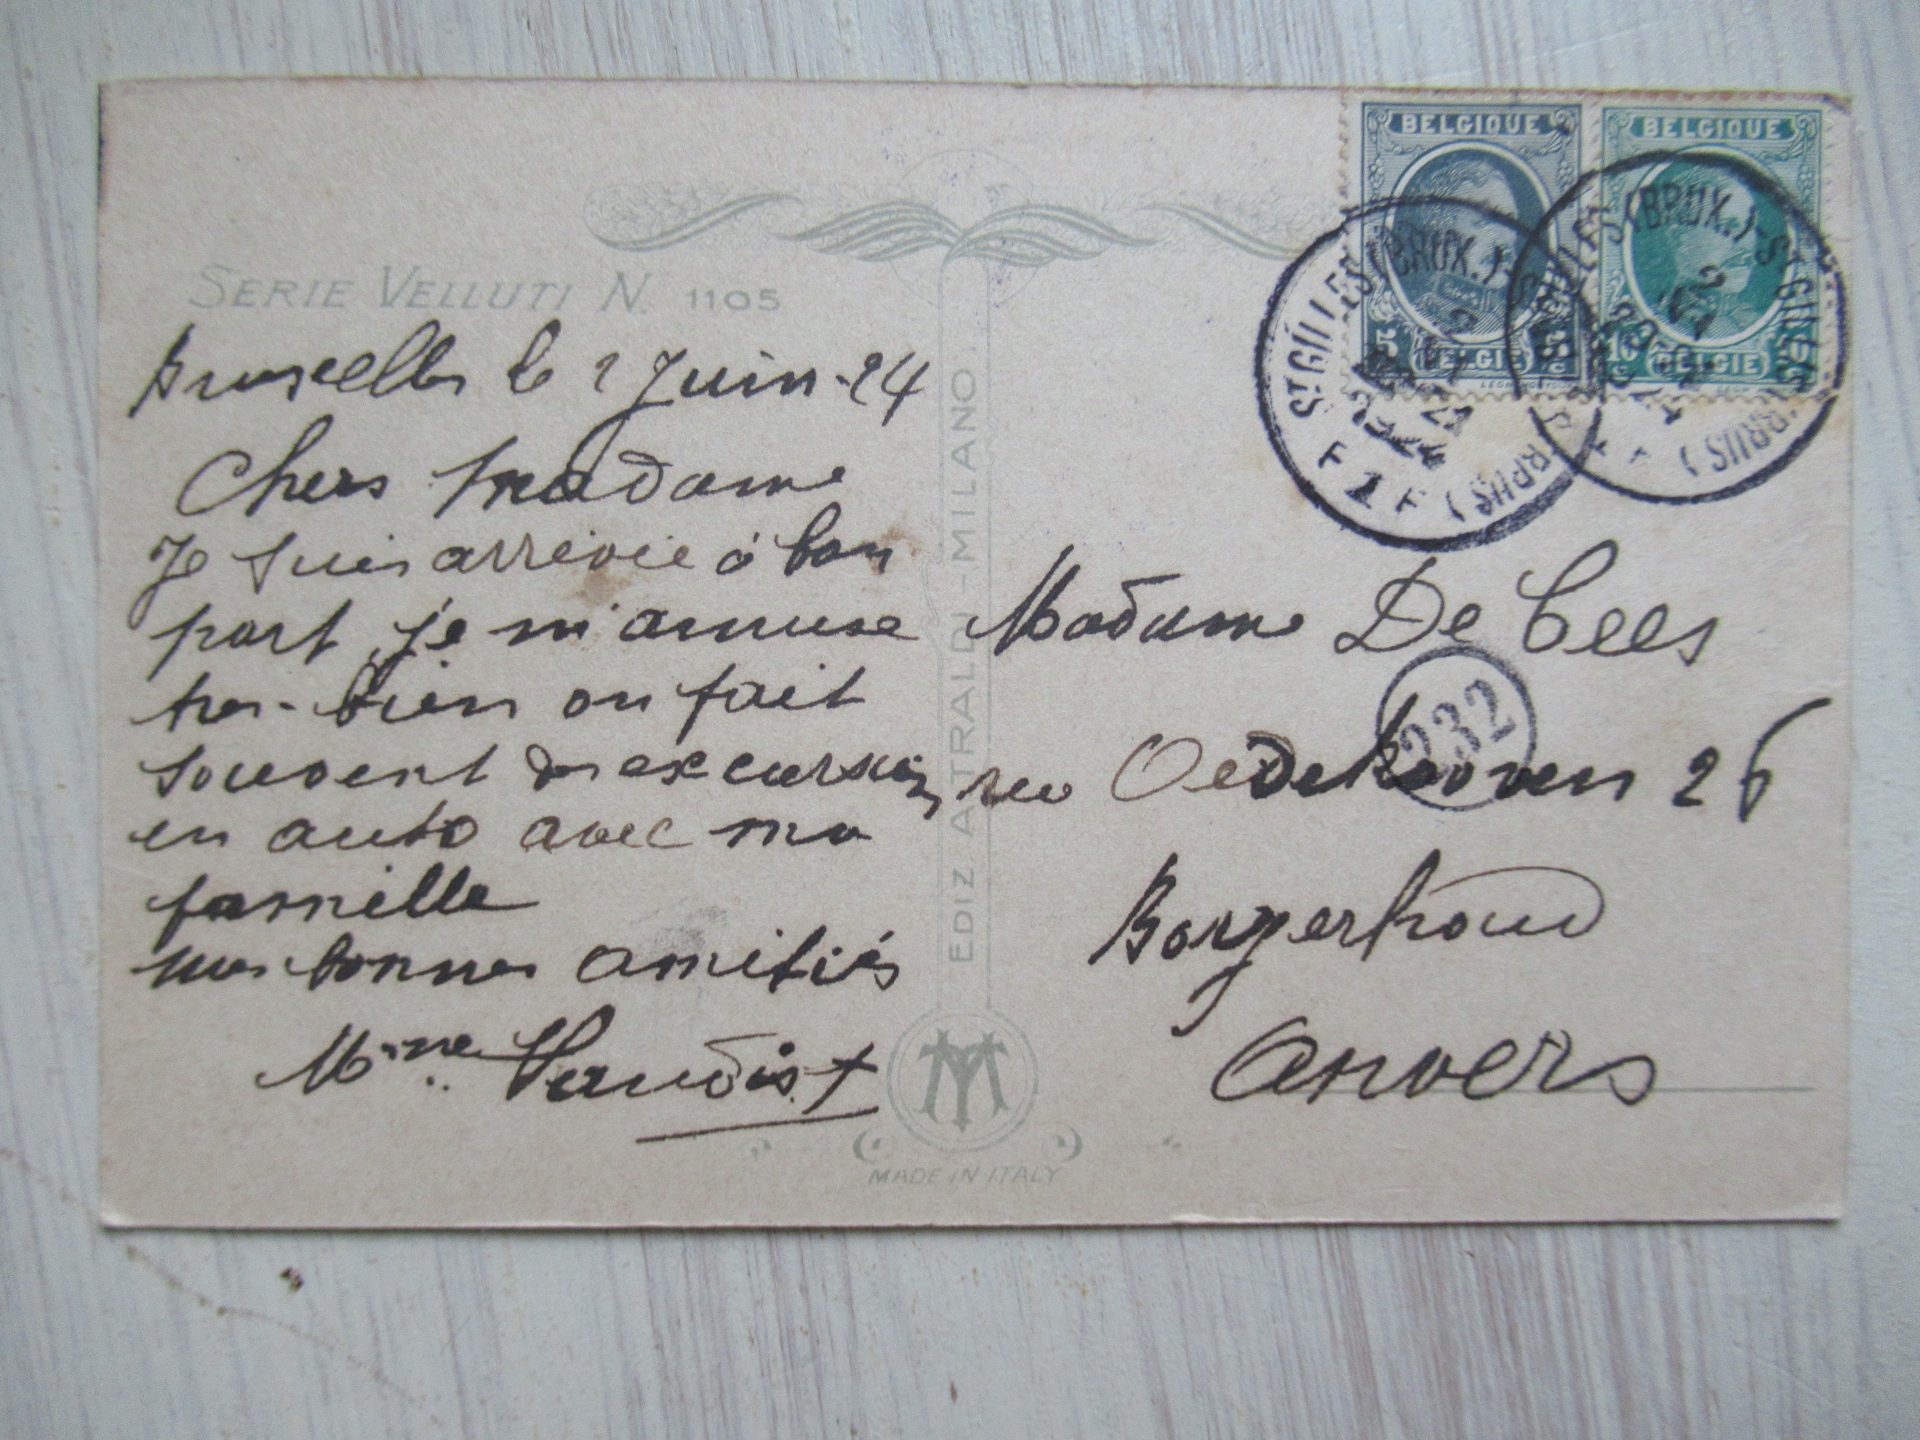 SERIE VELLUTI N. 1105
Bruxelles le 2 Juin. 24
Chers Madame
Je suis arrivée à bon
part je m'amuse
tres-bien on fait
souvent des excursion
en auto avec ma
famille
mes bonnes amitiés
Mme Vandist
EDIZ. A TRALDI - MILANO.
MADE IN ITALY
BELGIQUE
BELGIE
BELGIQUE
BELGIE
ST GILLES (BRUX.)
1924
F 1 F
ST GILLES (BRUX.)
Madame De Cees
232
rue Oedekoven 26
Borgerhoud
Anvers